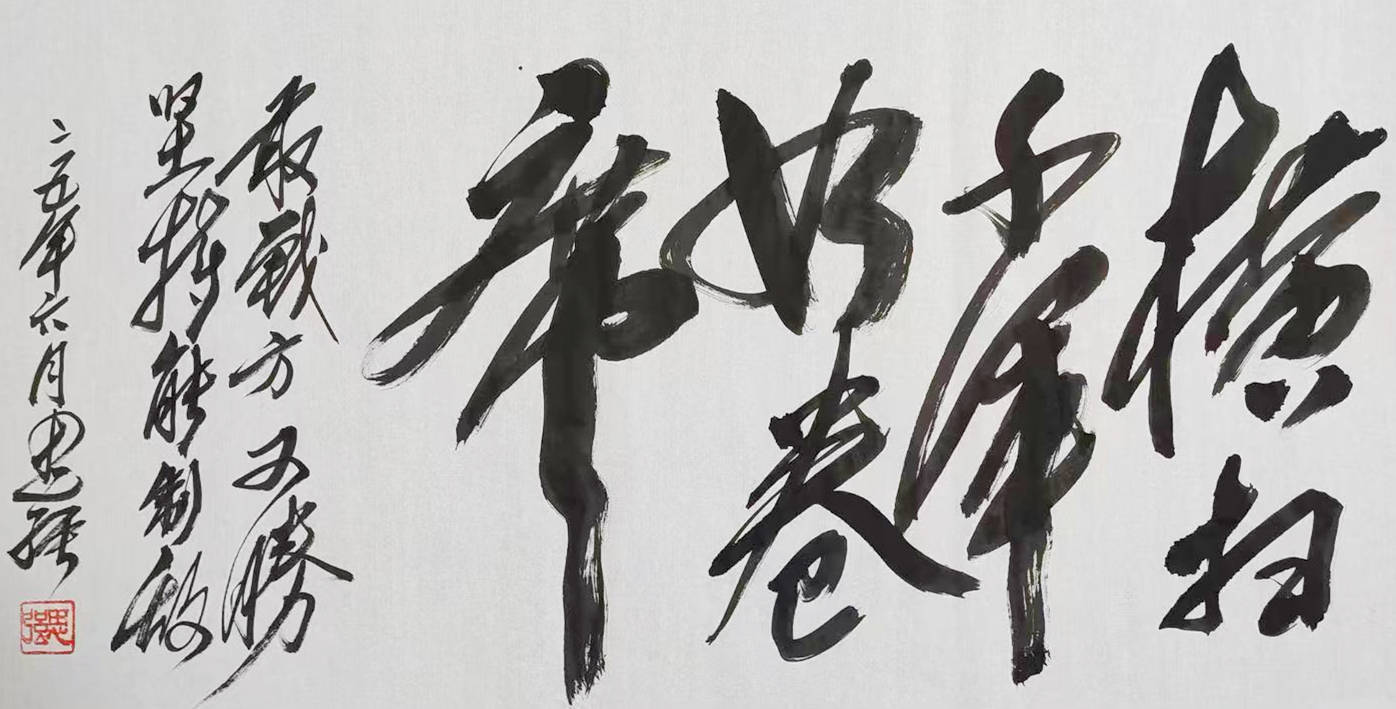 横扫
千军
如卷
席
敢战方又勝
坚持能制敌
二五年六月思强
思强